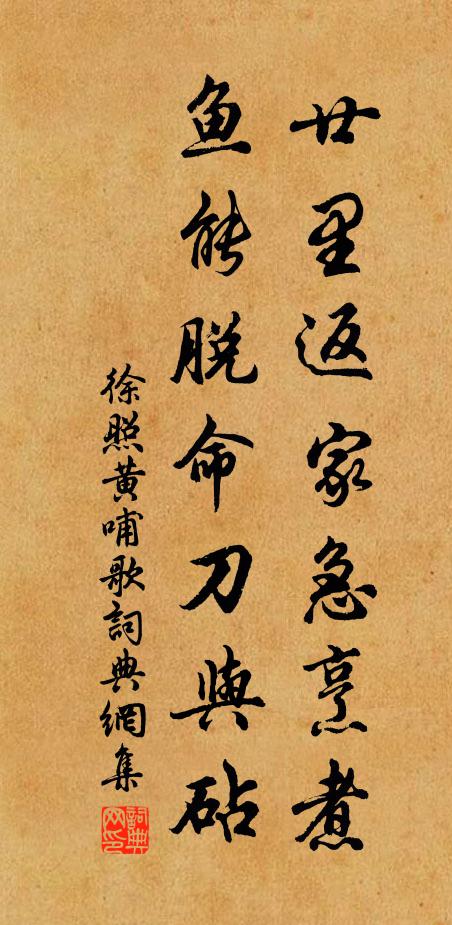 廿里返家急烹煮
鱼能脱命刀與砧
徐照黄哺歌詞典網集
詞典网印